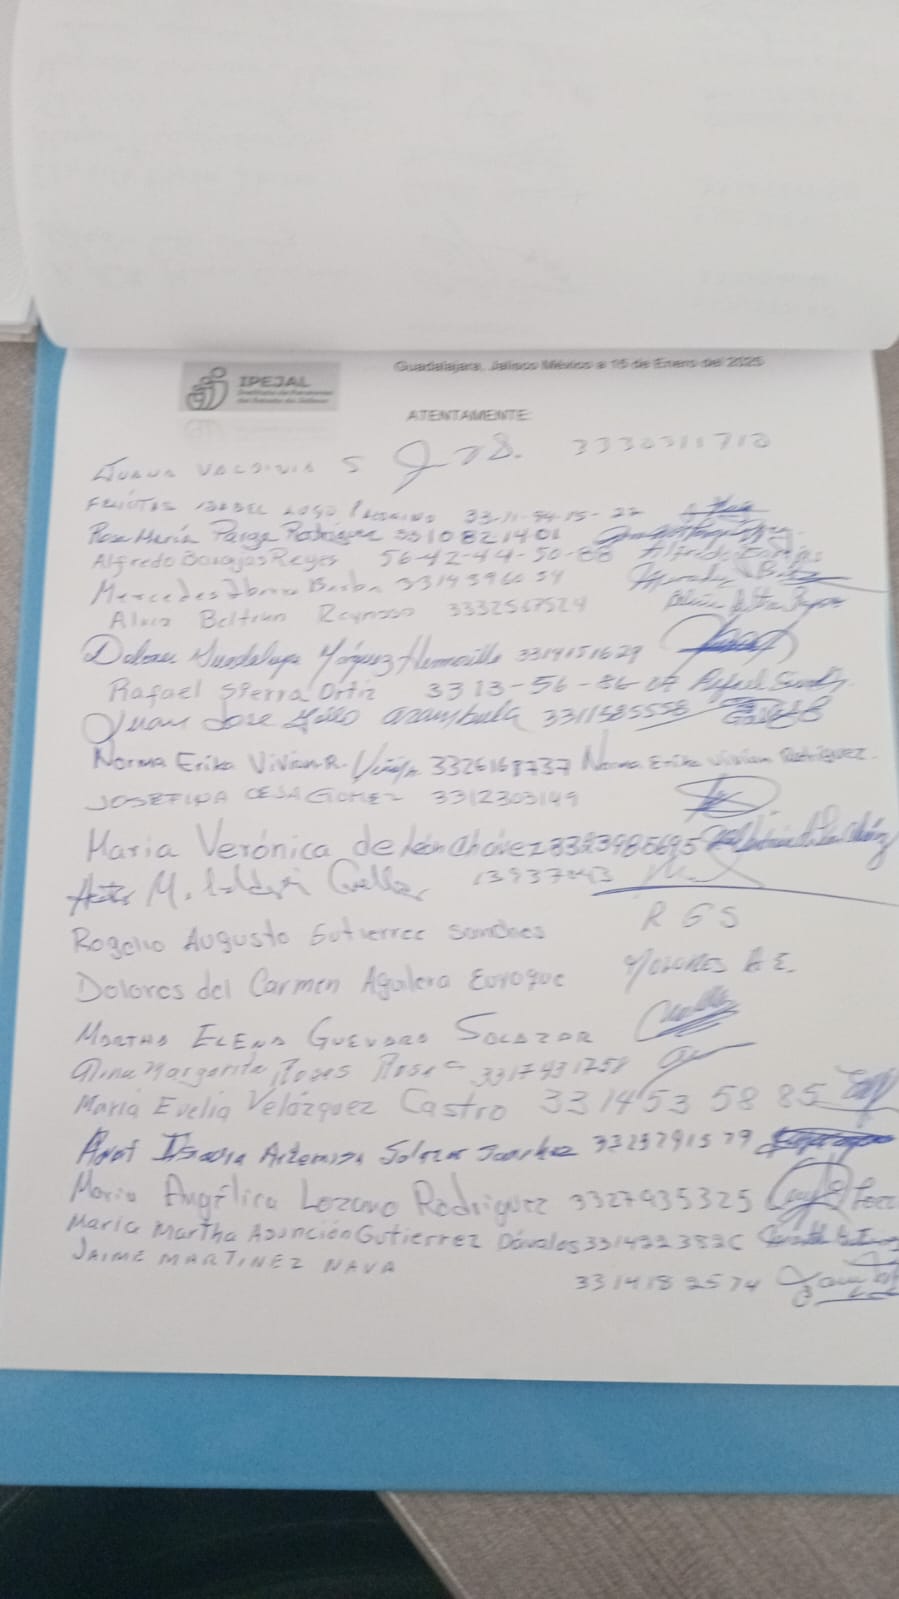 Guadalajara, Jalisco México a 15 de Enero del 2025
IPEJAL
Instituto de Pensiones
del Estado de Jalisco
ATENTAMENTE:
JUANA VALDIVIA S 3330311718
ISABEL LUGO 33-11-94-15-22
Rosa María Parga Rodríguez 3310821401
Alfredo Barajas Reyes 56-42-44-50-88 Alfredo Barajas
Mercedes Barba 3319596059
Alicia Beltran Reynoso 3332567524
Dolores Guadalupe Márquez Hermosillo 3314151629
Rafael Sierra Ortiz 3313-56-86-07 Rafael Sierra
Juan Jose Arambula 3311585558
Norma Erika Vivian R. 3326168737 Norma Erika Vivian Rodriguez.
JOSEFINA CEJA GOMEZ 3312303149
Maria Verónica de León Chávez 3323985695
M. Cuellar 13937043
Rogelio Augusto Gutierrez Sanches R G S
Dolores del Carmen Aguilera Euroque DOLORES A E.
MARTHA ELENA GUEVARA SALAZAR
Alina Margarita Rosas 3317431258
Maria Evelia Velázquez Castro 331453 58 85
Artemisa Salazar Sanchez 3323791579
Maria Angélica Lozano Rodriguez 3327935325
Maria Martha Asunción Gutierrez Dávalos 331422382C
JAIME MARTINEZ NAVA
3314182574